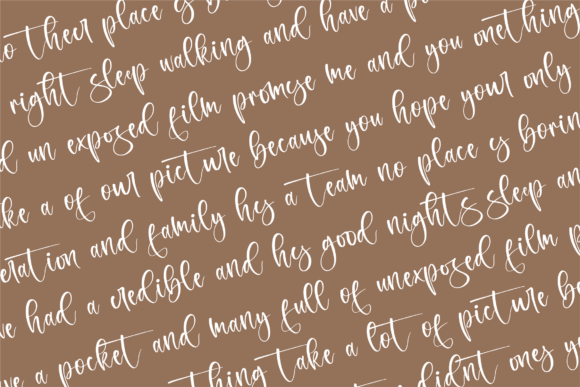 no theer place is b
right sleep walking and have a p
d un exposed film promise me and you onething
ke a of our picture because you hope your only
eration and family hes a team no place is borin
ve had a credible and hes good nights sleep an
ve a pocket and many full of unexposed film p
thing take a lot of picture be
didnt ones y